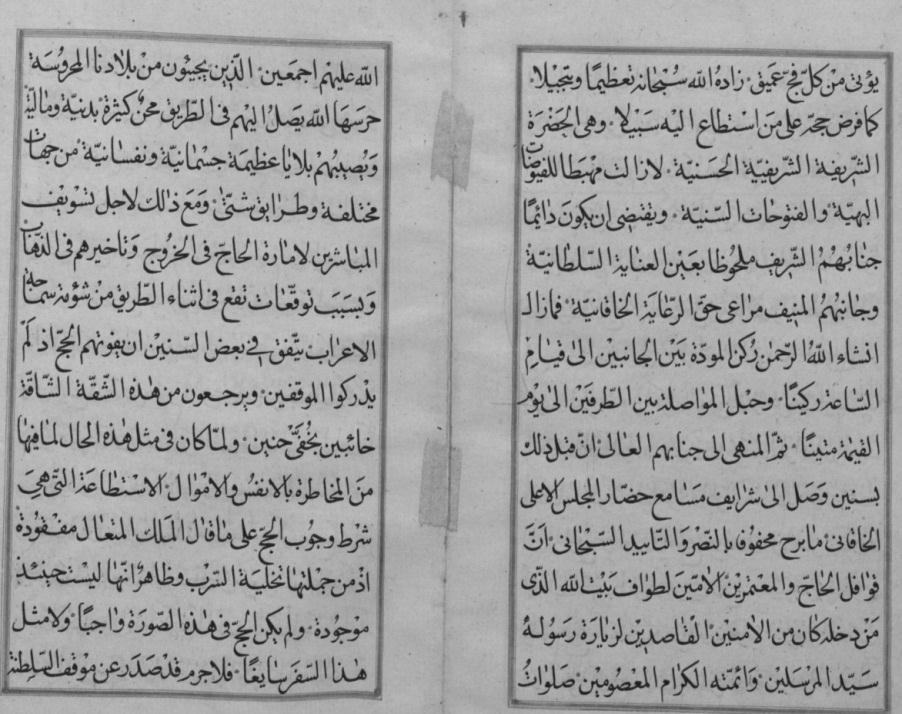 يؤتى من كل فج عميق زاده الله سبحانه تعظيما وتبجيلا
كما فرض حجه على من استطاع اليه سبيلا وهى الحضرة
الشريفة الشريفية الحسنية لا زالت مهبطا للفيوضات
البهية والفتوحات السنية ويقتضى ان يكون دائما
جنابهم الشريف ملحوظا بعين العناية السلطانية
وجانبهم المنيف مراعى حق الرعاية الخاقانية فما زال
انشاء الله الرحمن ركن المودة بين الجانبين الى قيام
الساعة ركينا وحبل المواصلة بين الطرفين الى يوم
القيمة متينا ثم المنهى الى جنابهم العالى ان قبل ذلك
بسنين وصل الى شرايف مسامع حضار المجلس الاعلى
الخاقانى ما برح محفوفا بالنصر والتاييد السبحانى ان
قوافل الحاج والمعتمرين الامين لطواف بيت الله الذى
من دخله كان من الامنين القاصدين لزيارة رسوله
سيد المرسلين وائمته الكرام المعصومين صلوات
الله عليهم اجمعين الذين يجيئون من بلادنا المحروسة
حرسها الله يصل اليهم فى الطريق محن كثيرة بدنية ومالية
ويصيبهم بلايا عظيمة جسمانية ونفسانية من جهات
مختلفة وطرايق شتى ومع ذالك لاجل تسويف
المباشرين لامارة الحاج فى الخروج وتاخيرهم فى الذهاب
وبسبب توقعات تقع فى اثناء الطريق من شؤنه سماحة
الاعراب يتفق فى بعض السنين ان يفوتهم الحج اذ لم
يدركوا الموقفين ويرجعون من هذه الشقة الشاقة
خائبين بخفى حنين ولما كان فى مثل هذه الحال لما فيها
من المخاطرة بالانفس والاموال الاستطاعة التى هى
شرط وجوب الحج على ما قال الملك المتعال مفقودة
اذ من جملتها تخلية السرب وظاهر انها ليست حينئذ
موجودة ولم يكن الحج فى هذه الصورة واجبا ولا مثل
هذا السفر سايغا فلا جرم قد صدر عن موقف السلطنة